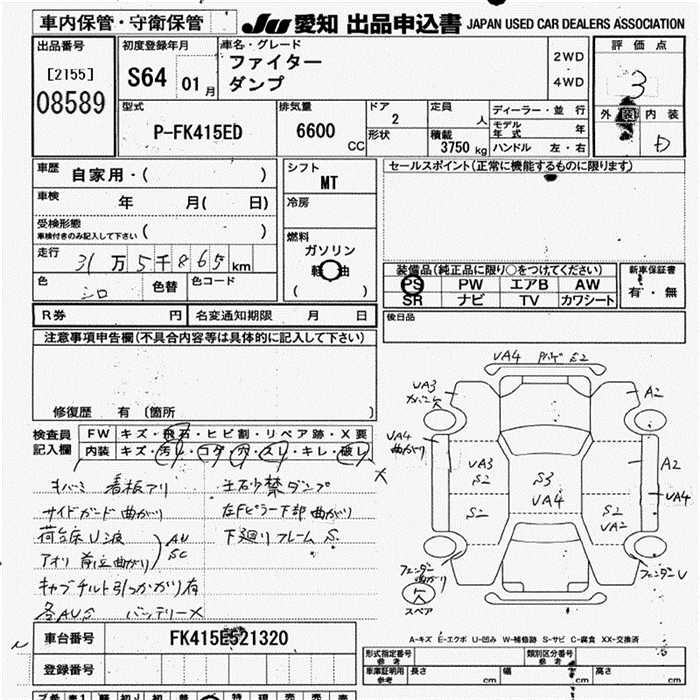 車内保管・守衛保管 JU 愛知 出品申込書 JAPAN USED CAR DEALERS ASSOCIATION
出品番号 初度登録年月 車名・グレード 評価点
[2155] S64 01月 ファイター 2WD 3
08589 ダンプ 4WD
外装 内装 D
型式 排気量 ドア 定員 ディーラー・並行
P-FK415ED 6600 CC 2 人 モデル年式 年
形状 積載 3750 kg ハンドル 左・右
車歴 自家用・( ) シフト MT セールスポイント(正常に機能するものに限ります)
車検 年 月( 日) 冷房
受検形態 ( )
車検付きのみ記入して下さい
燃料 ガソリン
走行 31万5千865km 軽油
( )
色 シロ 色替 色コード
装備品(純正品に限り○をつけてください) 新車保証書
PS PW エアB AW 有・無
SR ナビ TV カワシート
R券 円 名変通知期限 月 日 後日品
注意事項申告欄(不具合内容等は具体的に記入して下さい)
修復歴 有 〔箇所 〕
検査員 FW キズ・飛石・ヒビ割・リペア跡・X要
記入欄 内装 キズ・汚レ・コゲ・穴・スレ・キレ・破レ
キャビン 看板アリ 土砂禁ダンプ
サイドガード曲がり 左Fピラー下部曲がり
荷台床U波 下廻りフレーム S
アオリ 前立曲がり AU SC
キャブチルト引っかかり有
各AUS バッテリー×
VA4 S2
VA3 A2
VA4 曲がり
VA3 S2 S3 VA4 A2
VA4
S2 S2 VA2
フェンダー曲がり フェンダーU
スペア
車台番号 FK415E521320
登録番号
A-キズ E-エクボ U-凹み W-補修跡 S-サビ C-腐食 XX-交換済
形式指定番号 参考 類別区分番号 参考
車庫証明用 参考 長さ cm 幅 cm 高さ cm